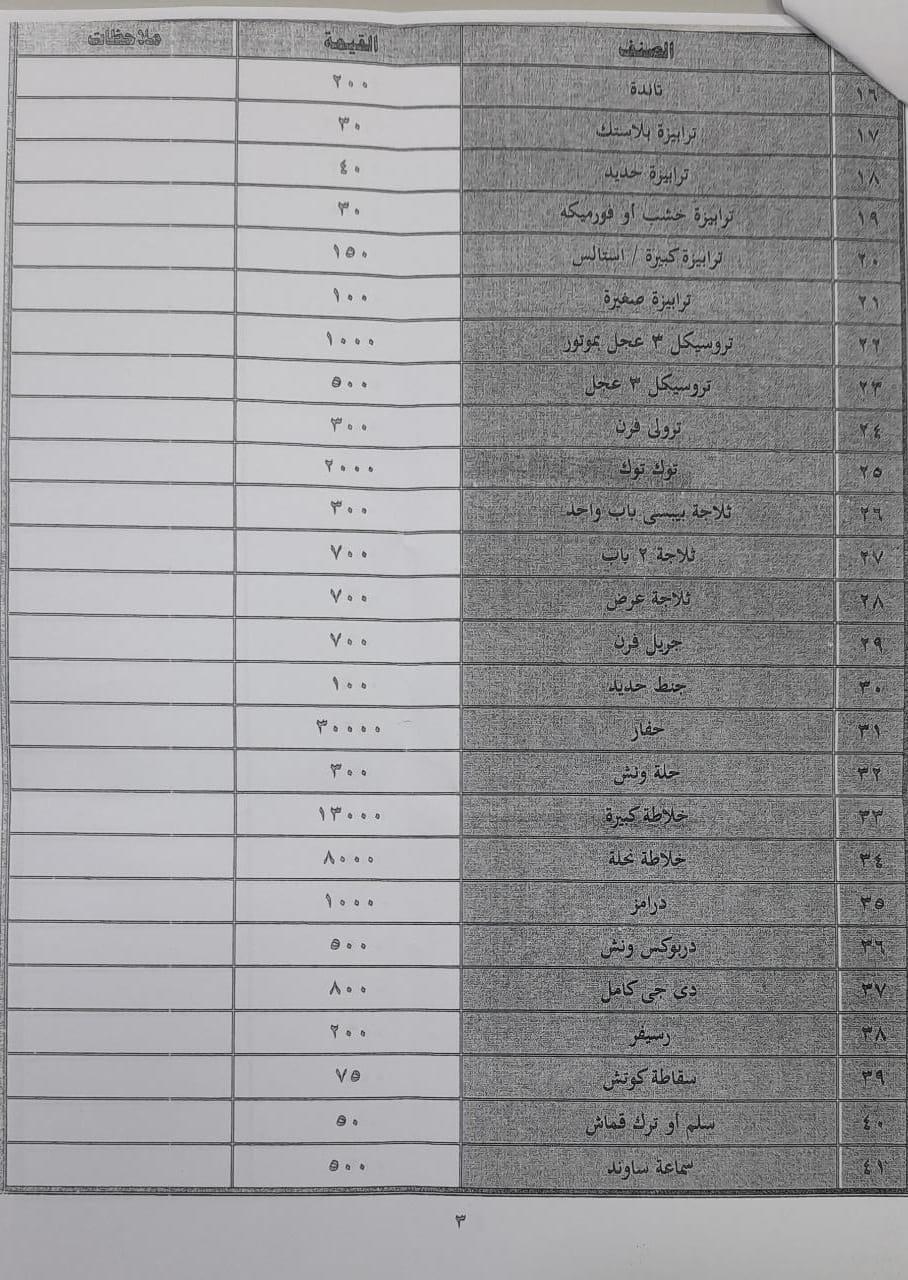 الصنف القيمة ملاحظات
١٦ تاندة ٢٠٠
١٧ ترابيزة بلاستك ٣٠
١٨ ترابيزة حديد ٤٠
١٩ ترابيزة خشب أو فورميكه ٣٠
٢٠ ترابيزة كبيرة / استالس ١٥٠
٢١ ترابيزة صغيرة ١٠٠
٢٢ تروسيكل ٣ عجل بموتور ١٠٠٠
٢٣ تروسيكل ٣ عجل ٥٠٠
٢٤ ترولى فرن ٣٠٠
٢٥ توك توك ٢٠٠٠
٢٦ ثلاجة بيبسى باب واحد ٣٠٠
٢٧ ثلاجة ٢ باب ٧٠٠
٢٨ ثلاجة عرض ٧٠٠
٢٩ جريل فرن ٧٠٠
٣٠ جنط حديد ١٠٠
٣١ حفار ٣٠٠٠٠
٣٢ حلة ونش ٣٠٠
٣٣ خلاطة كبيرة ١٣٠٠٠
٣٤ خلاطة نحلة ٨٠٠٠
٣٥ درامز ١٠٠٠
٣٦ دربوكس ونش ٥٠٠
٣٧ دى جى كامل ٨٠٠
٣٨ رسيفر ٢٠٠
٣٩ سقاطة كوتش ٧٥
٤٠ سلم أو ترك قماش ٥٠
٤١ سماعة ساوند ٥٠٠
٣